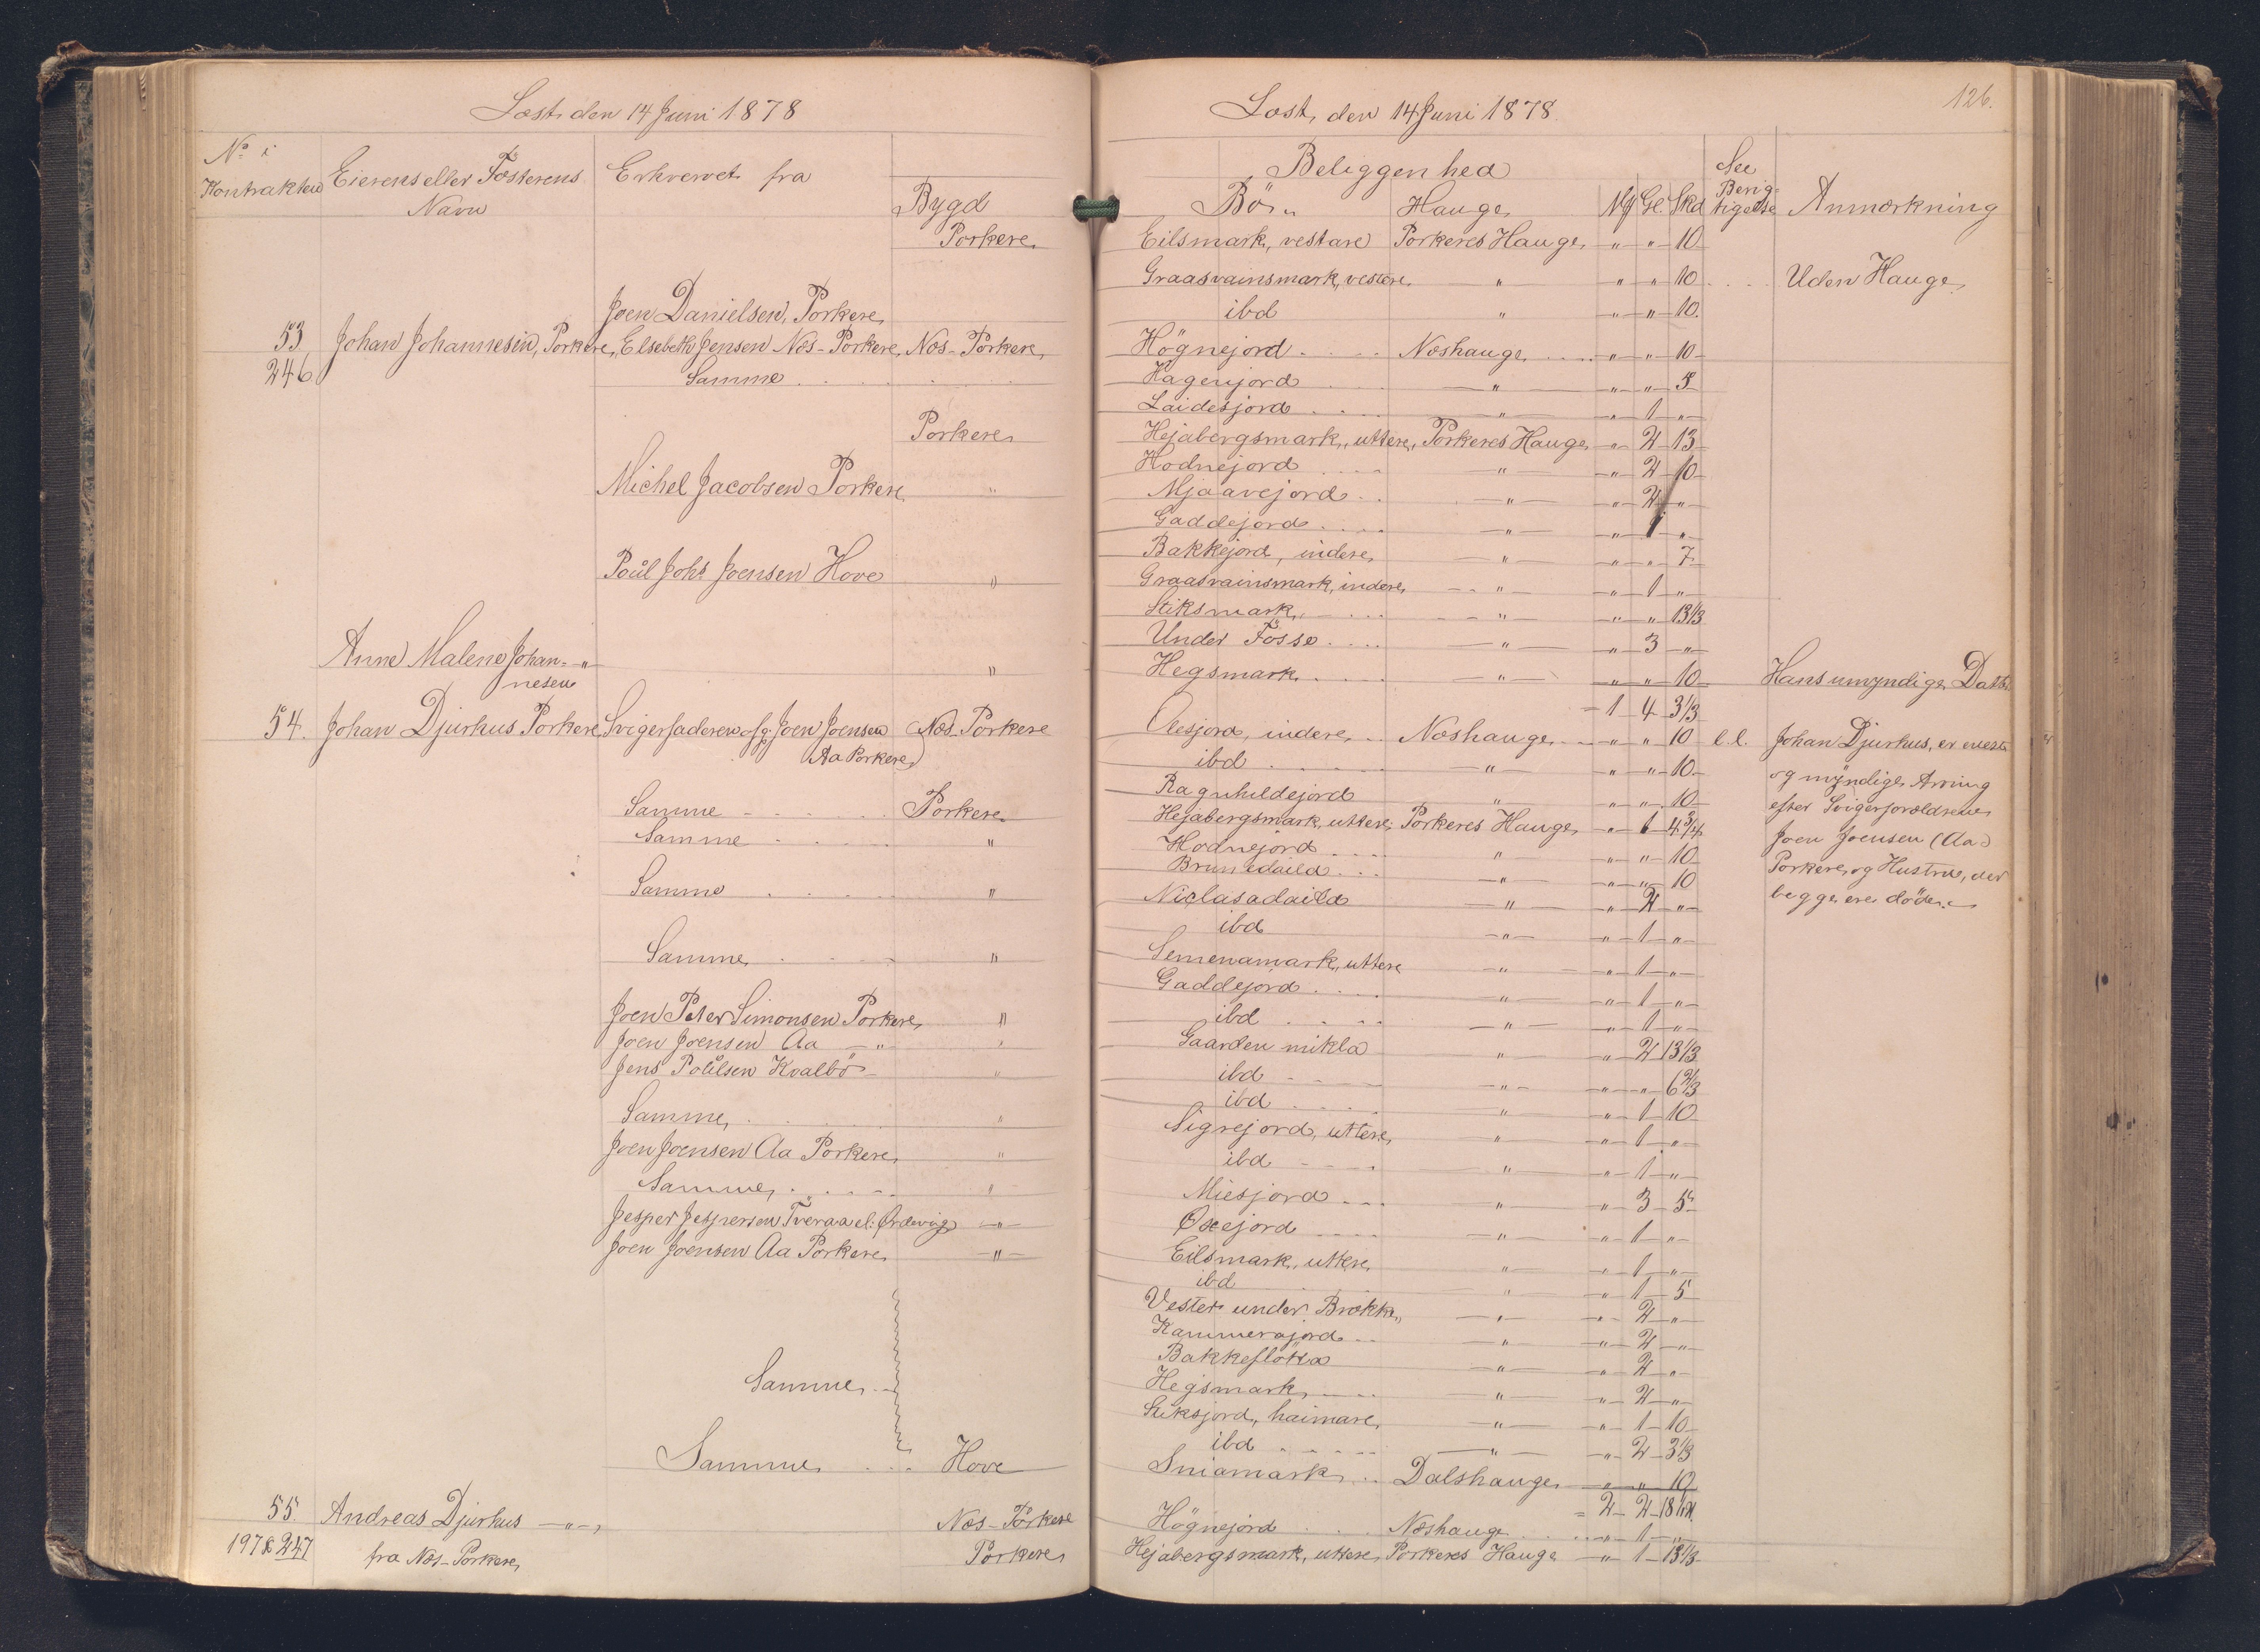 Læst den 14 Juni 1878
No i
Kontrakten
Eierens eller Fæsterens
Navn
Erhvervet fra
Bygd
Porkere
Joen Danielsen, Porkere
53 Johan Johannesen, Porkere, Elsebeth Jensen Næs-Porkere, Næs-Porkere
246 Samme
Porkere
Michel Jacobsen Porkere "
Poul Johs Joensen Hove "
Anne Malene Johan- "
nesen
54. Johan Djurhus Porkere Svigerfaderen Joen Joensen Næs-Porkere
Aa Porkere
Samme Porkere
Samme "
Samme "
Samme "
Joen Peter Simonsen Porkere "
Joen Joensen Aa " "
Jens Poulsen Kvalbö "
Samme "
Joen Joensen Aa Porkere "
Samme "
Jesper Jespersen Tveraa el. Ørdevig "
Joen Joensen Aa Porkere "
Samme
Samme Hove
55. Andreas Djurhus " Næs-Porkere
197 & 247 fra Næs-Porkere Porkere
Læst, den 14 Juni 1878
126.
Beliggenhed
Bö Hauge Mk Gl. Skd
See
Berig-
tigelse
Anmærkning
Eilsmark, vestare Porkeres Hauge " " 10
Graasvainsmark, vestere " " " 10 Uden Hauge
ibd " " " 10
Högnejord Næshauge " " 10
Hagenjord " " " 5
Laidesjord " " 1 "
Hejabergsmark, uttere, Porkeres Hauge " 2 13
Hodnejord " " 2 10
Mjaavejord " " 2 "
Gaddejord " " 1 "
Bakkejord, indere " " " 7
Graasvainsmark, indere " " 1 "
Stiksmark " " " 13 1/3
Under Fosse " " 3 "
Hegsmark " " " 10 Hans umyndige Datter
= 1 4 3 1/3
Oeesjord, indere Næshauge " " 10 l.l. Johan Djurhus, er eneste
ibd " " " 10 og myndige Arving
Ragnhildejord " " " 10 efter Svigerforældrene
Hejabergsmark, uttere, Porkeres Hauge " 1 4 3/4 Joen Joensen (Aa)
Hodnejord " " " 10 Porkere, og Hustrue, der
Brunedaild " " " 10 begge ere döde
Niclasadaild " " 2 "
ibd " " 1 "
Semenamark, uttere " " 1 "
Gaddejord " " 1 "
ibd " " 1 "
Gaarden mikla " " 2 13 1/3
ibd " " " 6 2/3
ibd " " 1 10
Sigrejord, uttere " " 1 "
ibd " " 1 "
Miesjord " " 3 5
Oxejord " " 1 "
Eilsmark, uttere " " 1 "
ibd " " 1 5
Vester under Brækku " " 2 "
Kammerajord " " 2 "
Bakkeflötta " " 2 "
Hegsmark " " 2 "
Stiksjord, haimare " " 1 10
ibd " " 2 3 1/3
Sniamark Dalshauge " " 10
= 2 2 18 1/12
Högnejord Næshauge " 1 "
Hejabergsmark, uttere, Porkeres Hauge " 1 13 1/3